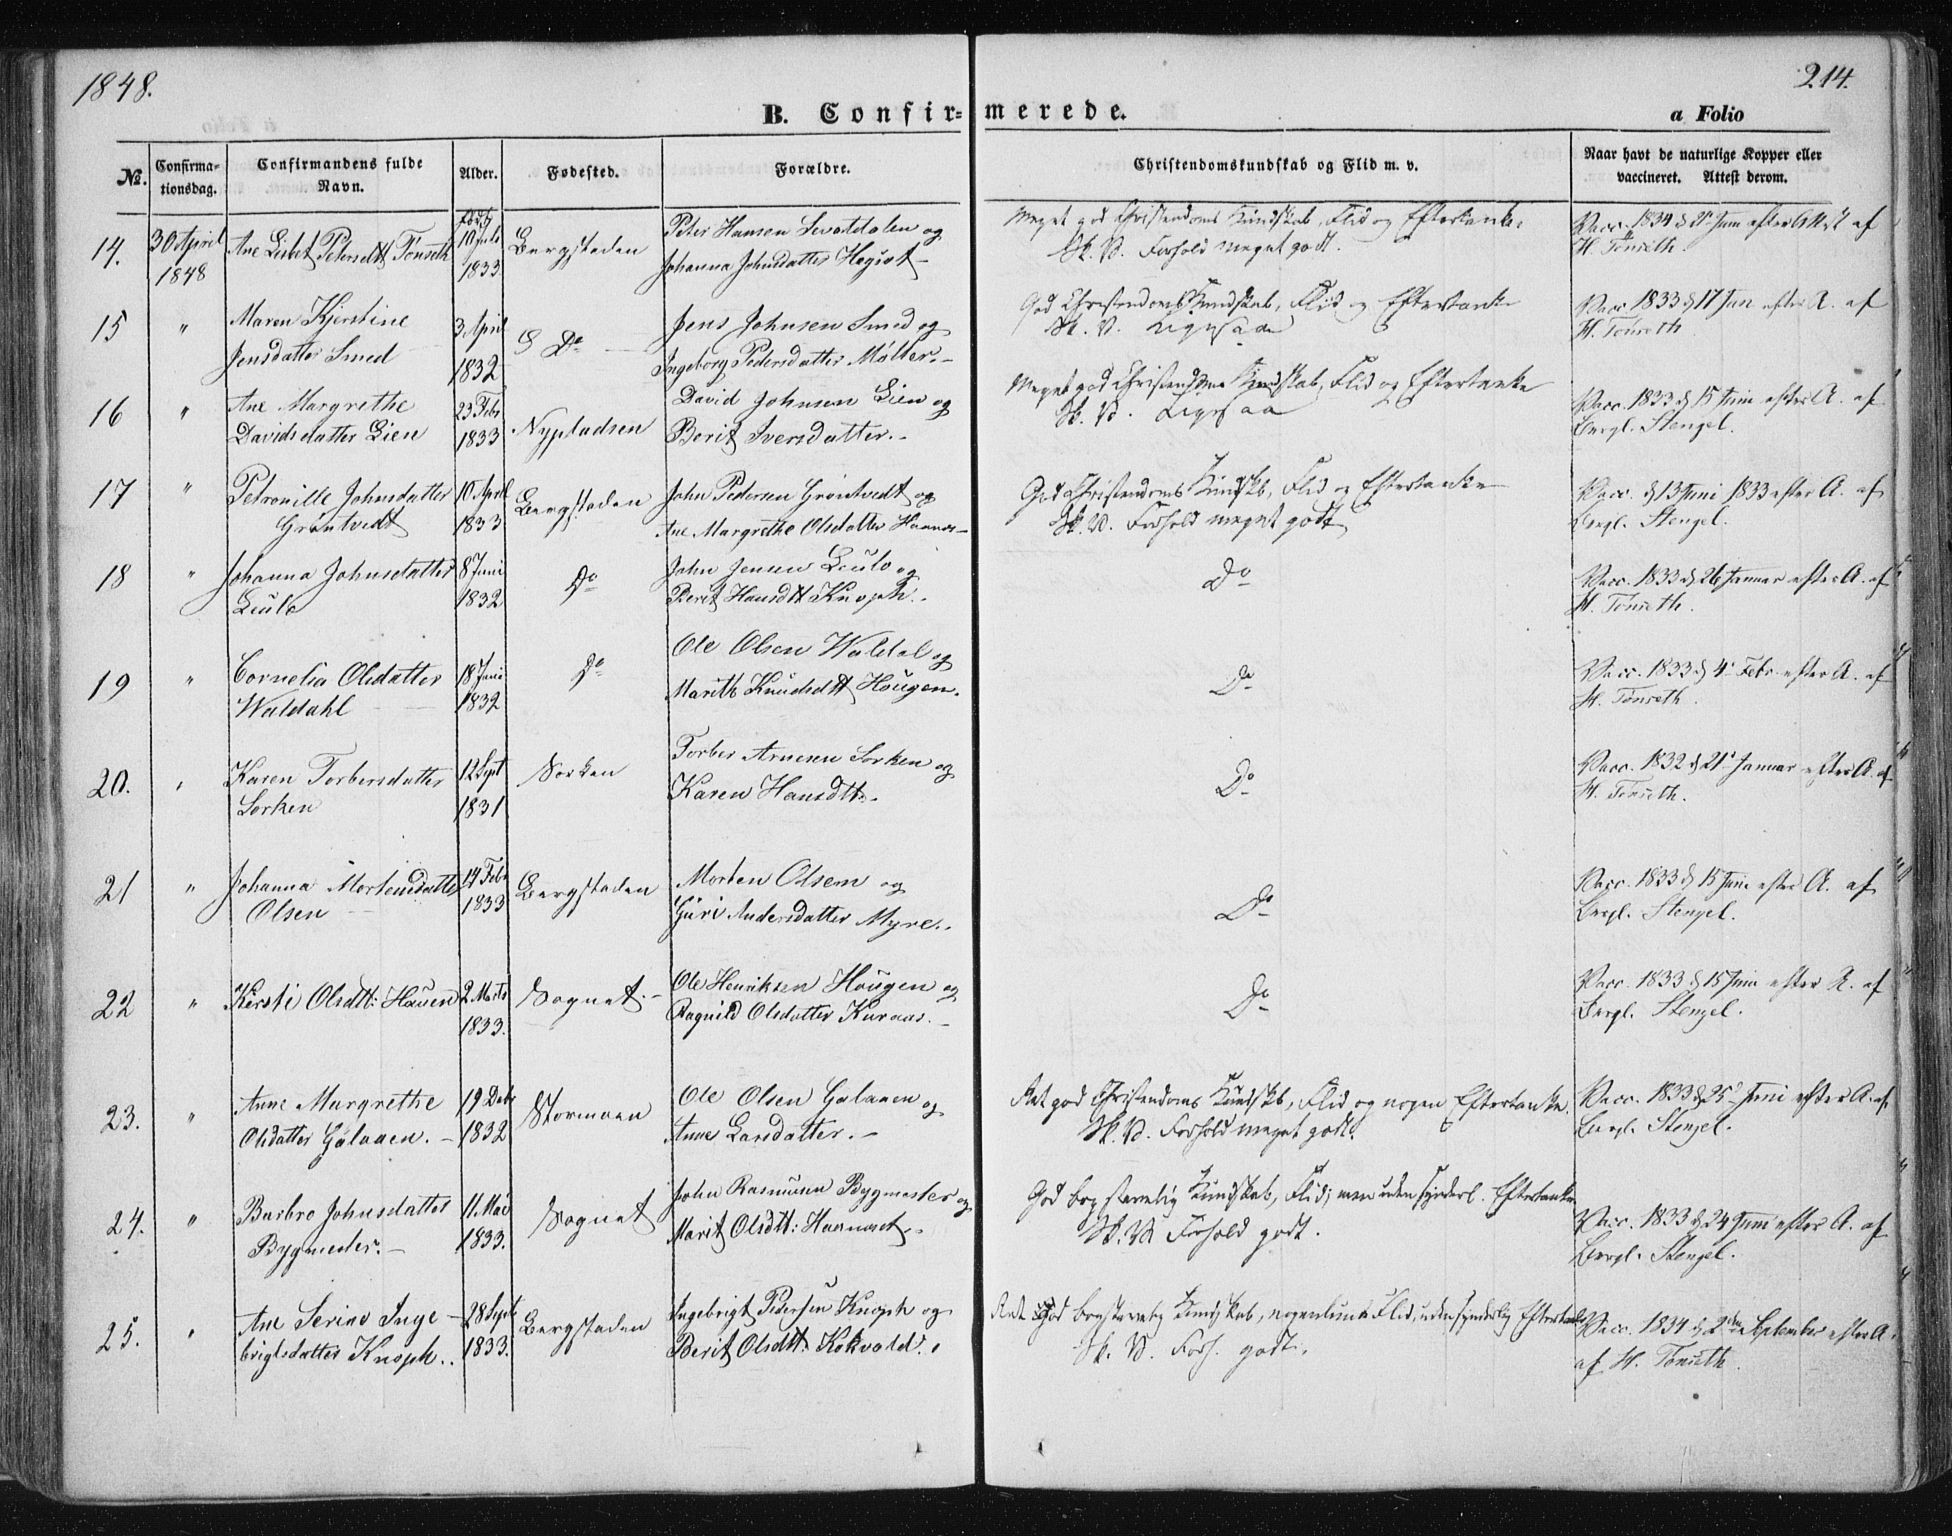 1848.
214.
B. Confirmerede.
a Folio
No.
Confirmationsdag.
Confirmandens fulde Navn.
Alder.
Fødested.
Forældre.
Christendomskundskab og Flid m. v.
Naar havt de naturlige Kopper eller vaccineret. Attest derom.
14.
30 April 1848
Ane Lisbet Petersdtt Tønseth
født 10 Juli 1833
Bergstaden
Peter Hansen og
Johanna Johnsdatter
Meget god Christendoms Kundskab, Flid og Eftertanke.
Sk. V. Forhold meget godt.
Vacc. 1834 d. Juni efter Att af
H. Tønseth.
15
"
Maren Kjerstine
Jensdatter Smed
3 April 1832
Do
Jens Johnsen Smed og
Ingeborg Pedersdatter Møller.
God Christendoms Kundskab, Flid og Eftertanke
Sk. V. Ligesaa
Vacc. 1833 d 17 Jan efter A. af
H. Tønseth.
16
"
Ane Margrethe
Davidsdatter Lien
23 Febr 1833
Nypladsen
David Johnsen Lien og
Berit Iversdatter.
Meget god Christendoms Kundskab, Flid og Eftertanke
Sk. V. Ligesaa
Vacc. 1833 d 15 Juni efter A. af
Bergl. Stengel.
17
"
Petronille Johnsdatter
Grøntvedt
10 April 1833
Bergstaden
John Pedersen Grøntvedt og
Ane Margrethe Olsdatter
God Christendoms Kundskb, Flid og Eftertanke
Sk. V. Forhold meget godt
Vacc. d 13 Juni 1833 efter A. af
Bergl. Stengel.
18
"
Johanna Johnsdatter
8 Juni 1832
Do
John Jensen og
Berit Hansdtt Knoph.
Do
Vacc. 1833 d 26 Januar efter A. af
H. Tønseth.
19
"
Cornelia Olsdatter
Waldahl
18 Juni 1832
Do
Ole Olsen Waldal og
Marith Knudsdtt Hougen.
Do
Vacc. 1833 d 4 Febr. efter A. af
H. Tønseth.
20.
"
Karen Torbersdatter
Sorken
12 Sept 1831
Sorken
Torber Arnesen Sorken og
Karen Hansdtt.
Do
Vacc. 1832 d 21 Januar efter A. af
H. Tønseth.
21
"
Johanna Mortensdatter
Olsen
14 Febr 1833
Bergstaden
Morten Olsen og
Guri Andersdatter Myre.
Do
Vacc. 1833 d 15 Juni efter A. af
Bergl. Stengel.
22
"
Kirsti Olsdtt: Hauen
2 Marts 1833.
Sognet.
Ole Henriksen Hougen og
Ragnild Olsdatter Kuraas.
Do
Vacc. 1833 d 15 Juni efter A. af
Bergl. Stengel.
23.
"
Anne Margrethe
Olsdatter Galaaen.
19 Debr 1832
Stormoen
Ole Olsen Galaaen og
Anne Larsdatter.
Ret god Christendoms Kundskb, Flid og nogen Eftertanke.
Sk. V. Forhold meget godt.
Vacc. 1833 d 25 Juni efter A. af
Bergl. Stengel.
24.
"
Barbro Johnsdatter
Bygmester.
11 Mai 1833.
Sognet
John Rasmusen Bygmester og
Marit Olsdtt:
God bogstavelig Kundskab, Flid; men uden synderl. Eftertanke
Sk. V. Forhold godt.
Vacc. 1833 d 24 Juni efter A. af
Bergl. Stengel.
25.
"
Ane Serine Inge-
brigtsdatter Knoph.
28 Sept 1833.
Bergstaden
Ingebrigt Pedersen Knoph og
Berit Olsdtt: Kokvold.
Ret God bogstavelig Kundskab, nogenlunde Flid, uden synderlig Eftertanke
Sk. V. Forh. godt.
Vacc. 1834 d 2den September efter A.
af H. Tønseth.